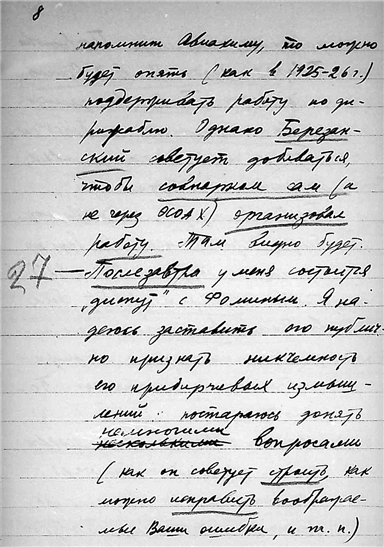 8
напомнит Авиахиму, то можно
будет опять (как в 1925-26 г.)
поддерживать работу по ди-
рижаблю. Однако Березан-
ский советует добиваться,
чтобы совнархоз сам (а
не через ОСОАХ) организовал
работу. Там видно будет.
27 — Послезавтра у меня состоится
"диспут" с Фоминым. Я на-
деюсь заставить его публич-
но признать никчемность
его измыш-
лений: постараюсь донять
немногими
несколькими вопросами
(как он советует строить, как
можно исправить вообража-
емые Ваши ошибки, и т. п.)